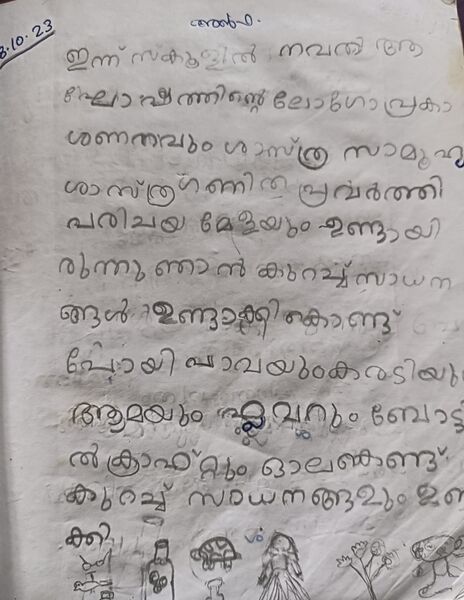 8.10.23
ഇന്ന് സ്കൂളിൽ നവതി ആ
ഘോഷത്തിന്റെ ലോഗോ പ്രകാ
ശനതവും ശാസ്ത്ര സാമൂഹ്യ
ശാസ്ത്രഗണിത പ്രവർത്തി
പരിചയ മേളയും ഉണ്ടായി
രുന്നു ഞാൻ കുറച്ച് സാധന
ങ്ങൾ ഉണ്ടാക്കി കൊണ്ടു്
പോയി പാവയും കരടിയും
ആമയും ഫ്ലവറും ബോട്ടി
ൽ ക്രാഫ്റ്റും ഓലകെണ്ട്
കുറച്ച് സാധനങ്ങളും ഉണ്ടാ
ക്കി